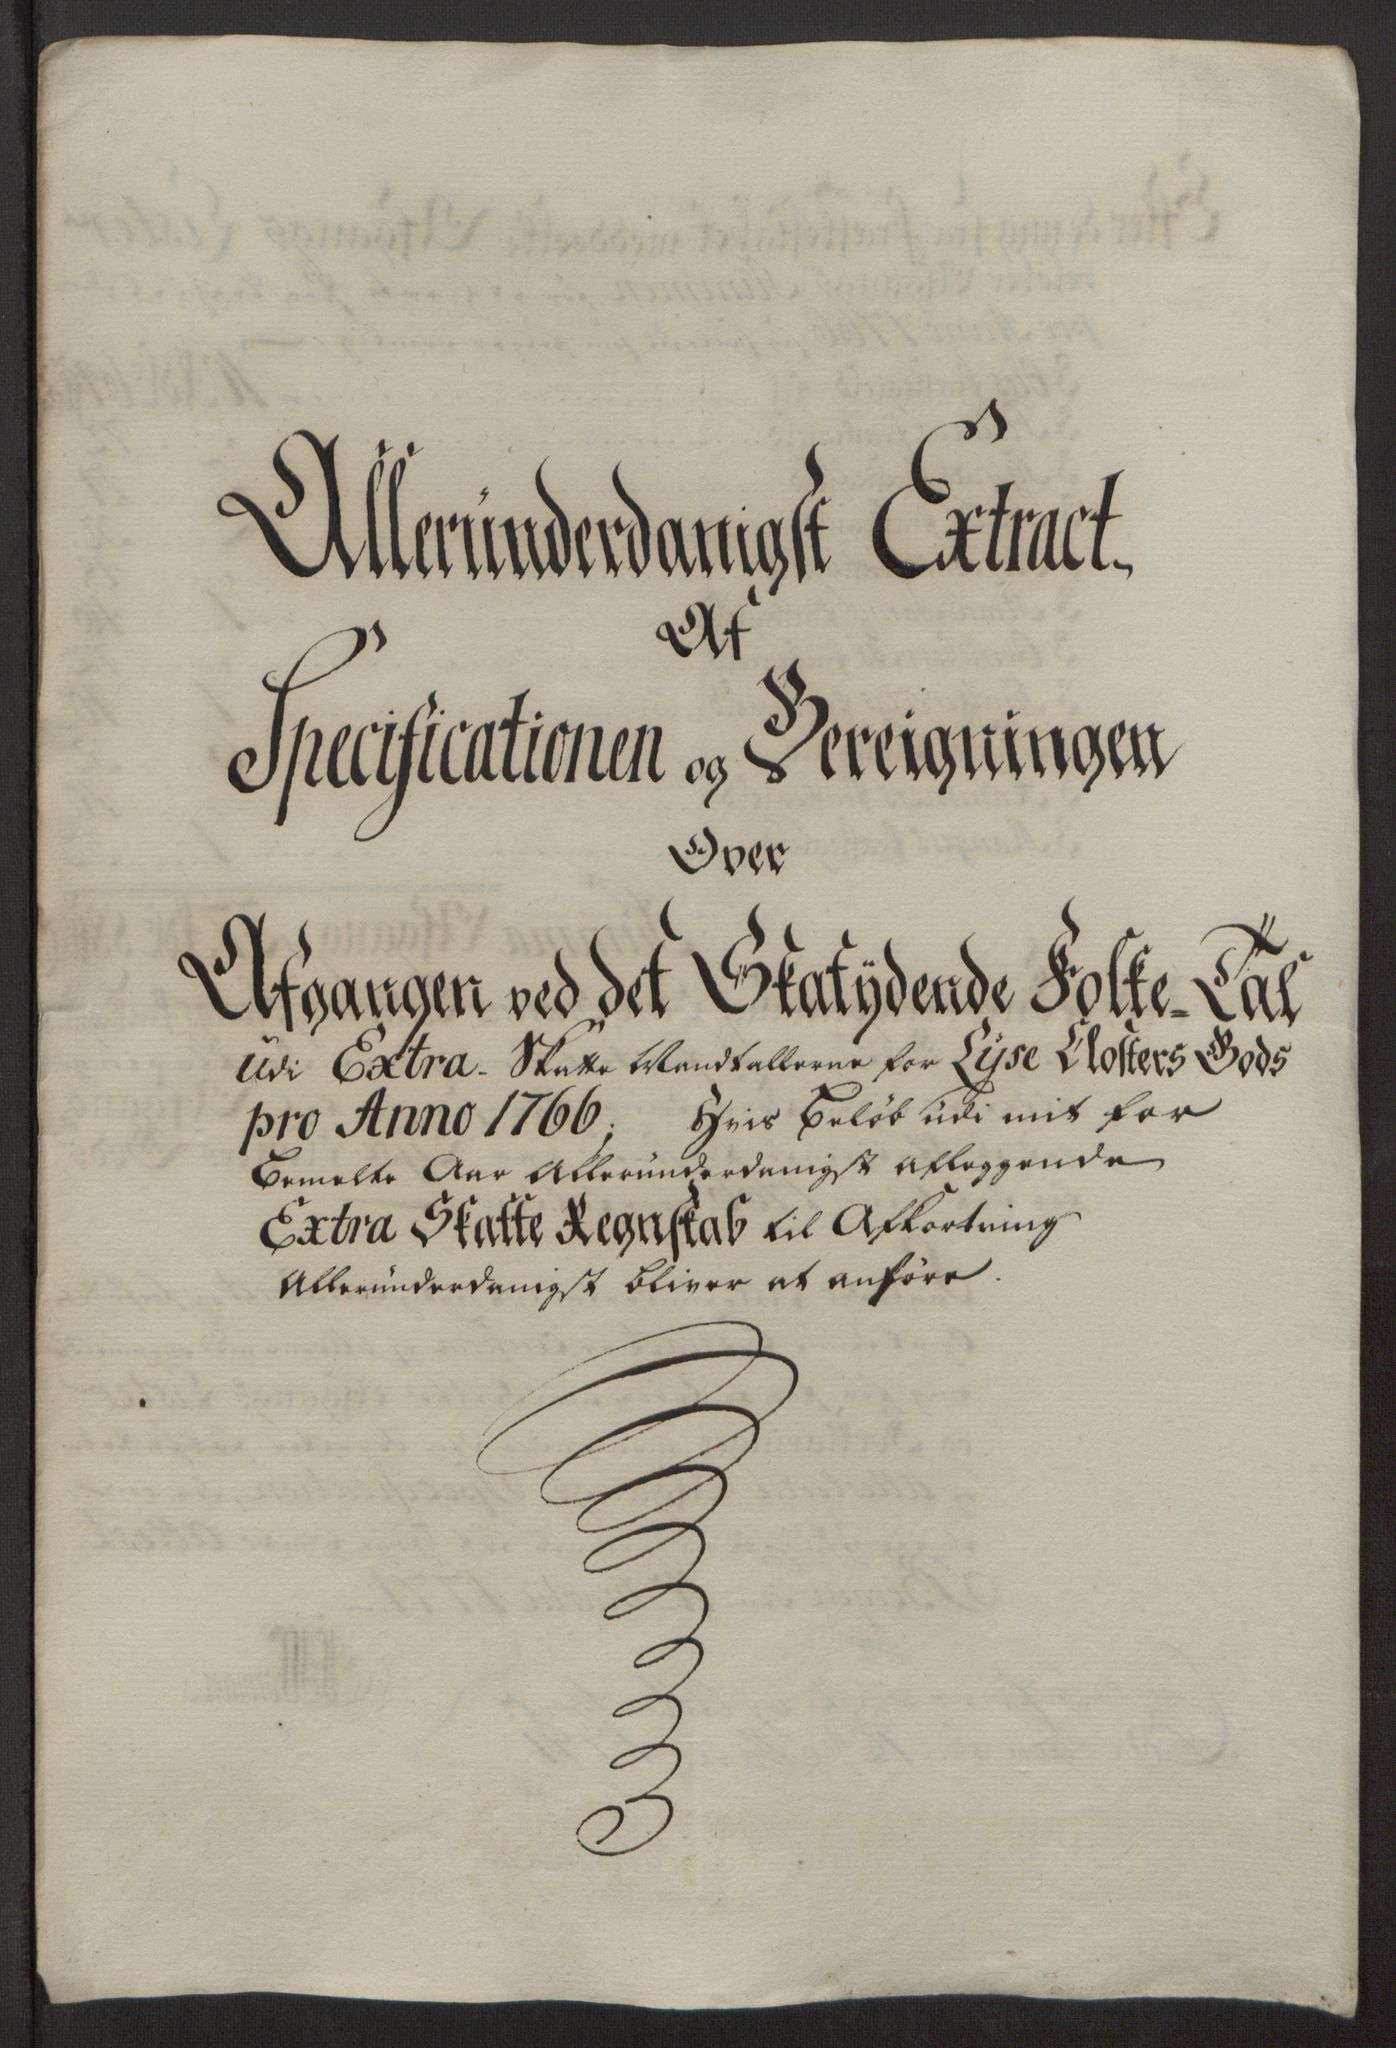 Alleründerdanigst Extract
Af
Specificationen og Bereigningen
Over
Afgangen ved det Skatÿdende Folke-Tal
udi Extra-Skatte Mandtallerne for Lyse Closters Gods
pro Anno 1766; Hvis Beløb udi mit for
bemelte Aar Alleründerdanigst aflæggende
Extra Skatte Regnskab til Afkortning
Alleründerdanigst bliver at anføre.